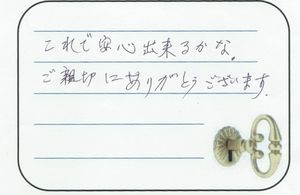 これで安心出来るかな。
ご親切にありがとうございます.